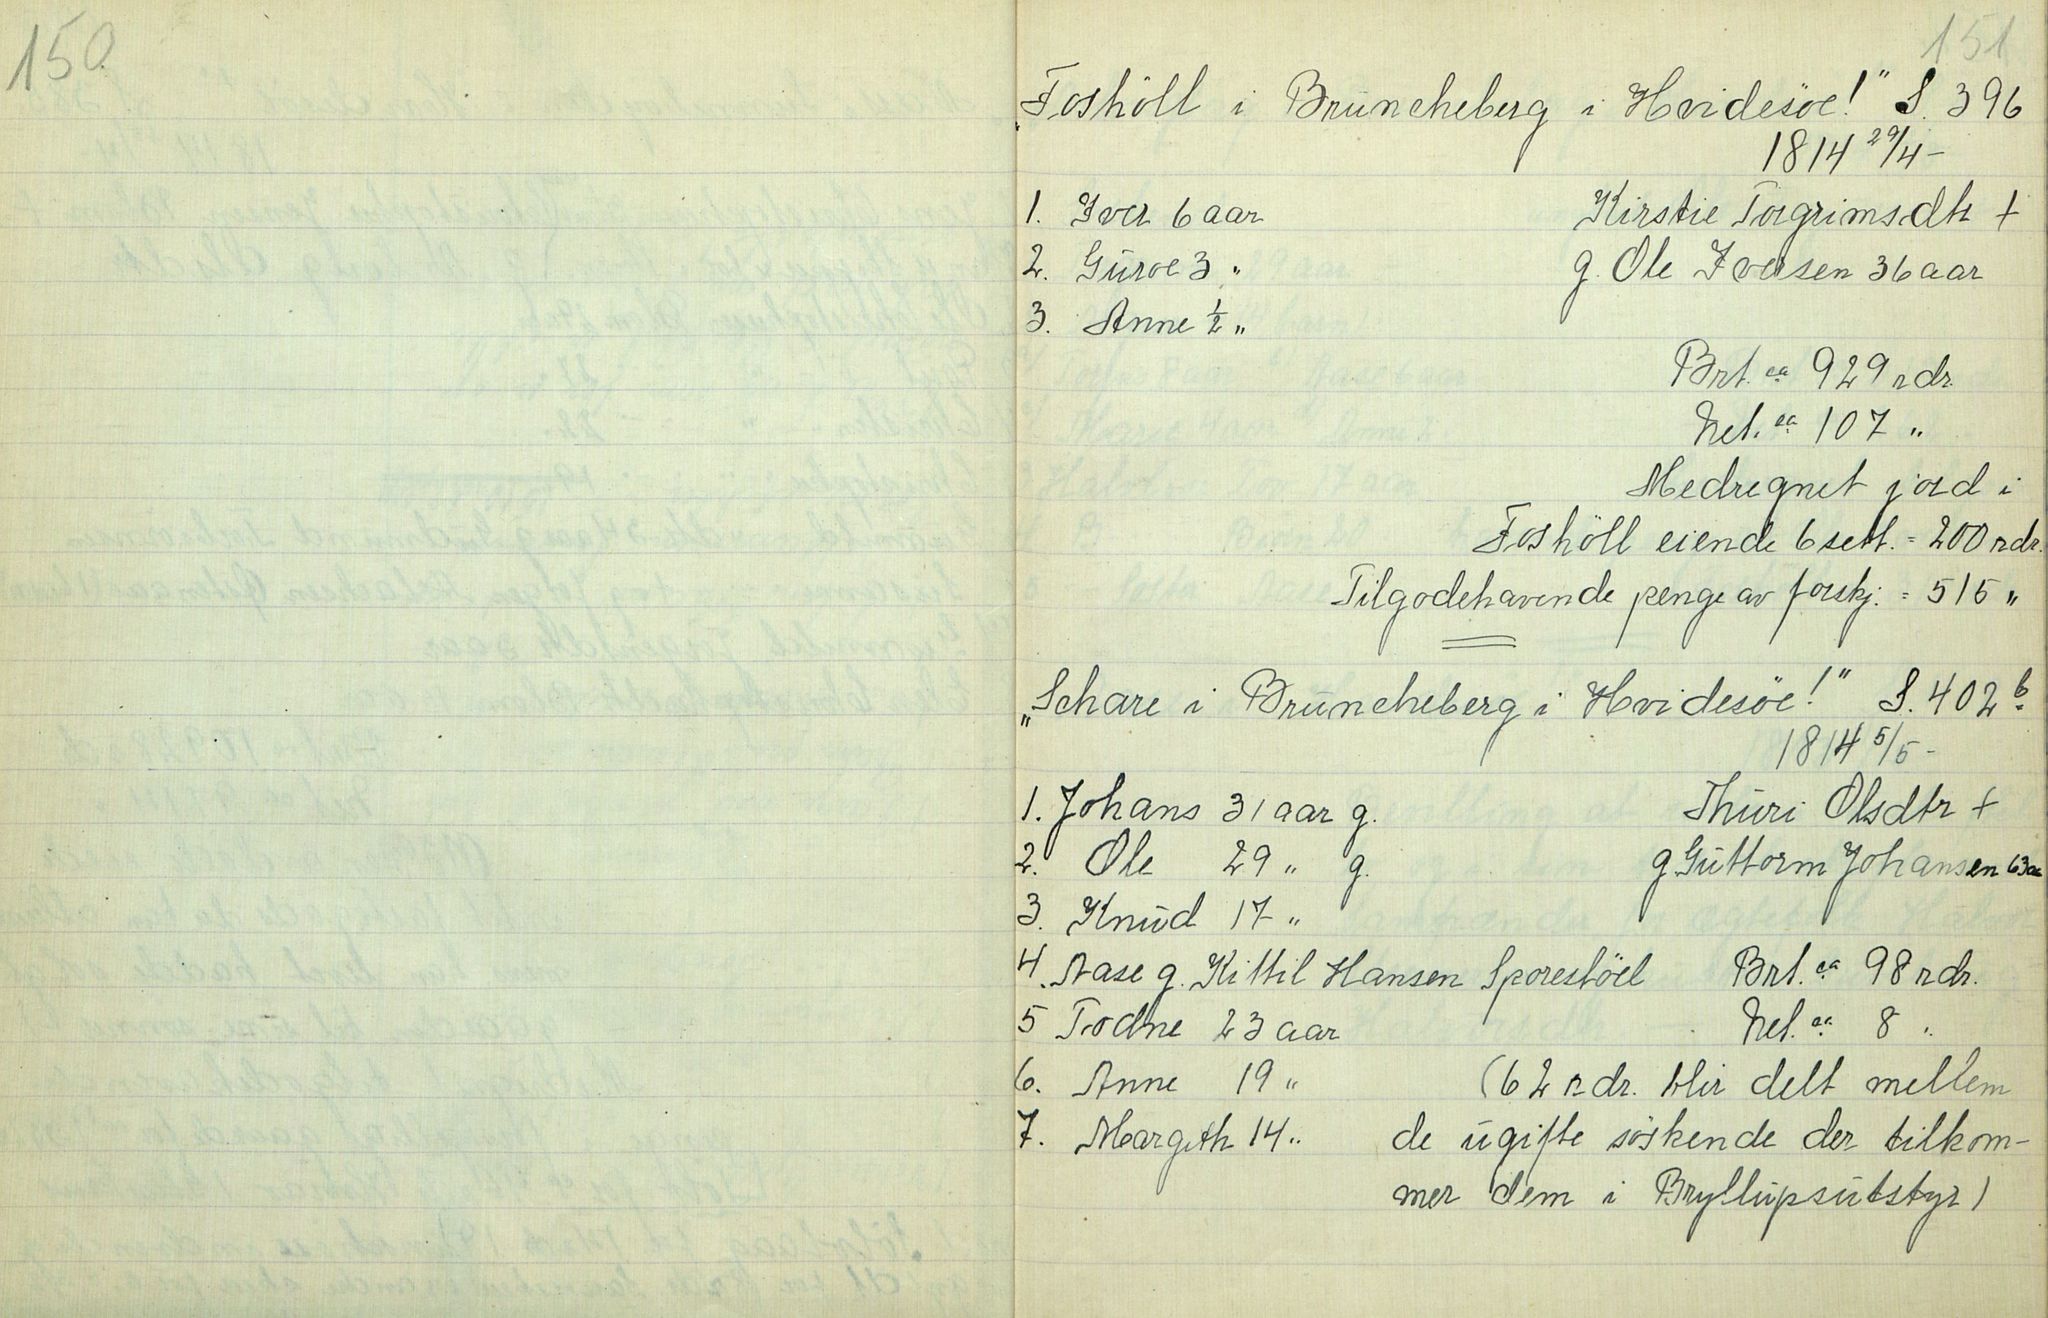 150
151
„Foshöll i Brüncheberg i Hvidesöe!" S. 396
1814 29/4 -
1. Iver 6 aar Kirstie Torgrimsdtr +
2. Güroe 3 „ g. Ole Iversen 36 aar
3. Anne ½ „
Brt. ca 929 rdr.
Net. ca 107 „
Medregnet jord i
Foshöll eiende 6 sett. = 200 rdr.
Tilgodehavende penge av forskj. = 515 „
„Schare i Brüncheberg i Hvidesöe!" S. 402 b
1814 5/5 -
1. Johans 31 aar g. Thüri Olsdtr +
2. Ole 29 „ g. g. Güttorm Johansen 63 aa
3. Knüd 17 „
4. Aase g. Kittil Hansen Sporestöel Brt. ca 98 rdr.
5 Todne 23 aar Net. ca 8 „
6. Anne 19 „ (62 rdr. blir delt mellem
7. Margith 14 „ de ügifte söskende der tilkom-
mer dem i Bryllüpsütstyr)